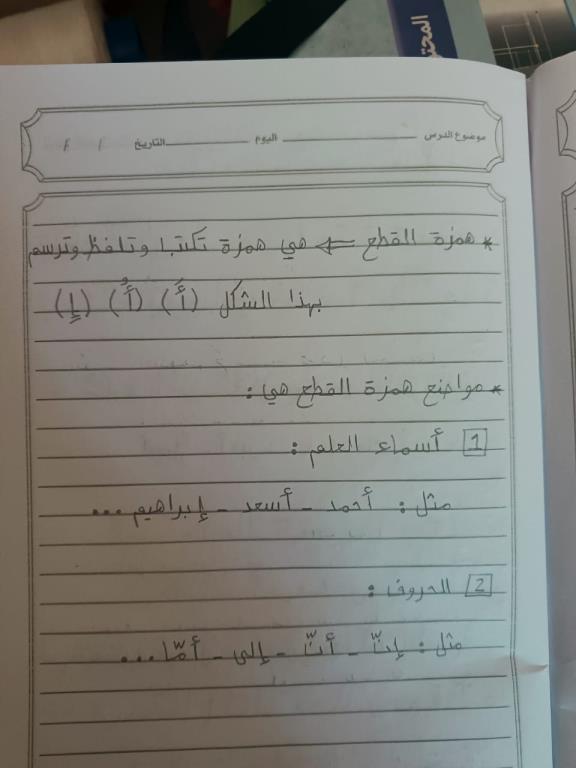 المحتو
موضوع الدرس اليوم التاريخ / /
* همزة القطع ⇐ هي همزة تكتب وتلفظ وترسم
بهذا الشكل (أَ) (أُ) (إِ)
* مواضع همزة القطع هي :
1 أسماء العلم :
مثل : أحمد - أسعد - إبراهيم ...
2 الحروف :
مثل : إنّ - أنّ - إلى - أمّا ...